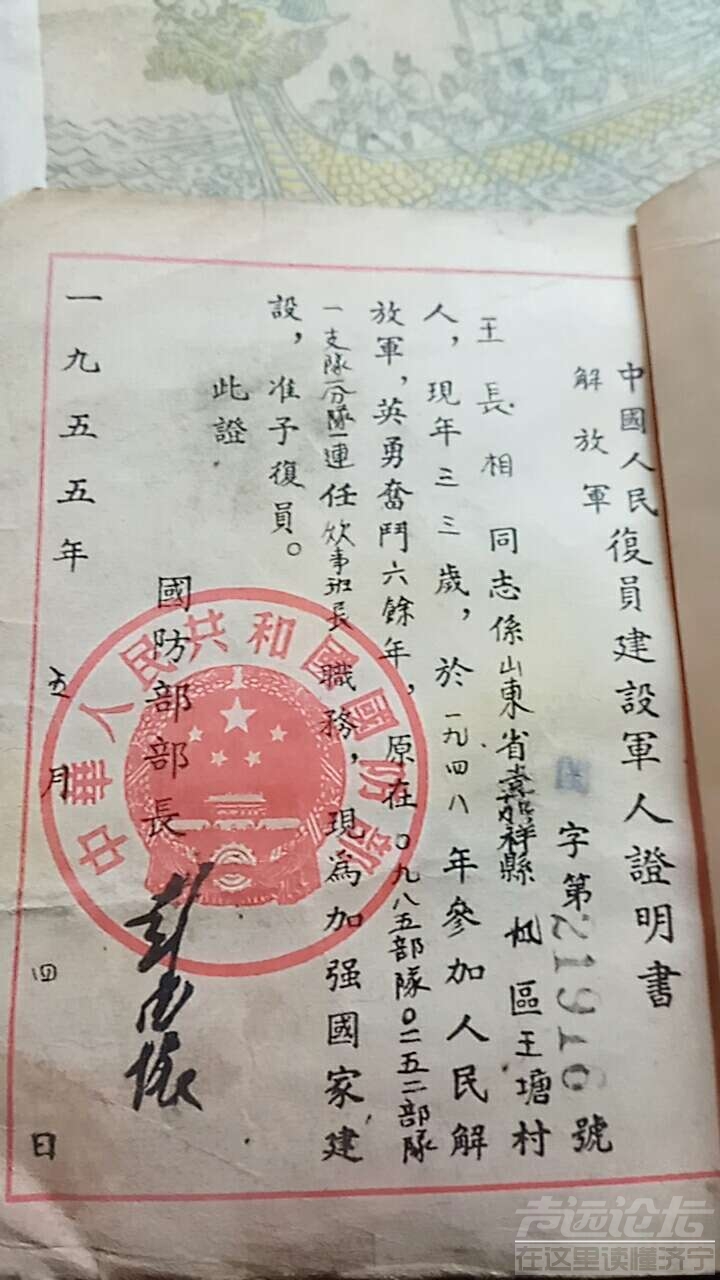 中國人民
解放軍
復員建設軍人證明書
字第21916號
王長相同志係山東省嘉祥縣 區王塘村
人，現年三三歲，於一九四八年參加人民解
放軍，英勇奮鬥六餘年，原在〇九八五部隊〇二五二部隊
一支隊一分隊一連任炊事班長職務，現為加强國家建
設，准予復員。
此證
國防部部長
彭德懷
一九五五年五月四日
中華人民共和國國防部
声远论坛
在这里读懂济宁